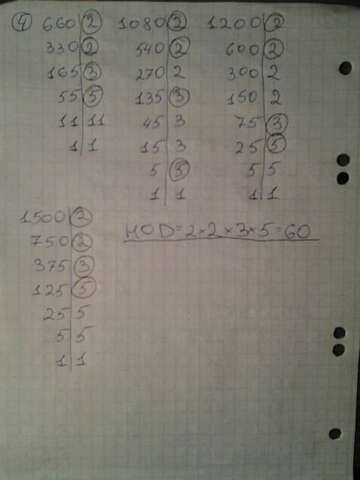 ④ 660|2 1080|2 1200|2
330|2 540|2 600|2
165|3 270|2 300|2
55|5 135|3 150|2
11|11 45|3 75|3
1|1 15|3 25|5
5|5 5|5
1|1 1|1
1500|2 НОД=2×2×3×5=60
750|2
375|3
125|5
25|5
5|5
1|1